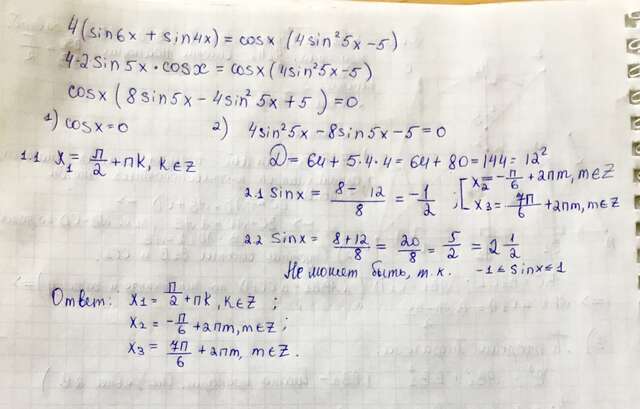 4(sin6x + sin4x) = cosx (4sin²5x-5)
4·2sin5x·cosx = cosx(4sin²5x-5)
cosx(8sin5x - 4sin²5x + 5) = 0
1) cosx=0 2) 4sin²5x-8sin5x-5=0
1.1 x₁ = π/2 + πk, k∈Z D = 64+5·4·4 = 64+80=144=12²
2.1 sinx = (8-12)/8 = -1/2 ; [x₂ = -π/6 + 2πm, m∈Z
x₃ = 7π/6 + 2πm, m∈Z
2.2 sinx = (8+12)/8 = 20/8 = 5/2 = 2 1/2
Не может быть, т.к. -1≤sinx≤1
Ответ: x₁ = π/2 + πk, k∈Z ;
x₂ = -π/6 + 2πm, m∈Z ;
x₃ = 7π/6 + 2πm, m∈Z.